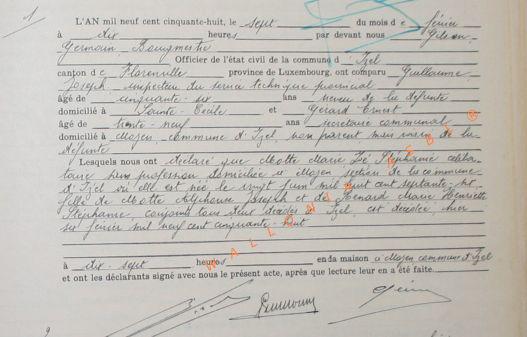 1
L'AN mil neuf cent cinquante-huit, le sept du mois de février
à dix heures par devant nous
Germain Bourgmestre
Officier de l'état civil de la commune d'Izel
canton de Florenville province de Luxembourg, ont comparu Guillaume
Joseph, inspecteur du service technique provincial
âgé de cinquante-six ans neveu de la défunte
domicilié à Sainte-Cécile et Gérard Ernest
âgé de trente-neuf ans secrétaire communal
domicilié à Moyen, commune d'Izel, non parent mais voisin de la
défunte
Lesquels nous ont déclaré que Motte Marie Stéphanie céliba-
taire sans profession domiciliée à Moyen section de la commune
d'Izel où elle est née le vingt juin mil huit cent septante
fille de Motte Alphonse Joseph et de Renard Marie Henriette
Stéphanie, conjoints tous deux décédés à Izel, est décédée hier
six février mil neuf cent cinquante-huit
à dix-sept heures en sa maison à Moyen commune d'Izel
et ont les déclarants signé avec nous le présent acte, après que lecture leur en a été faite.
WALLONIE